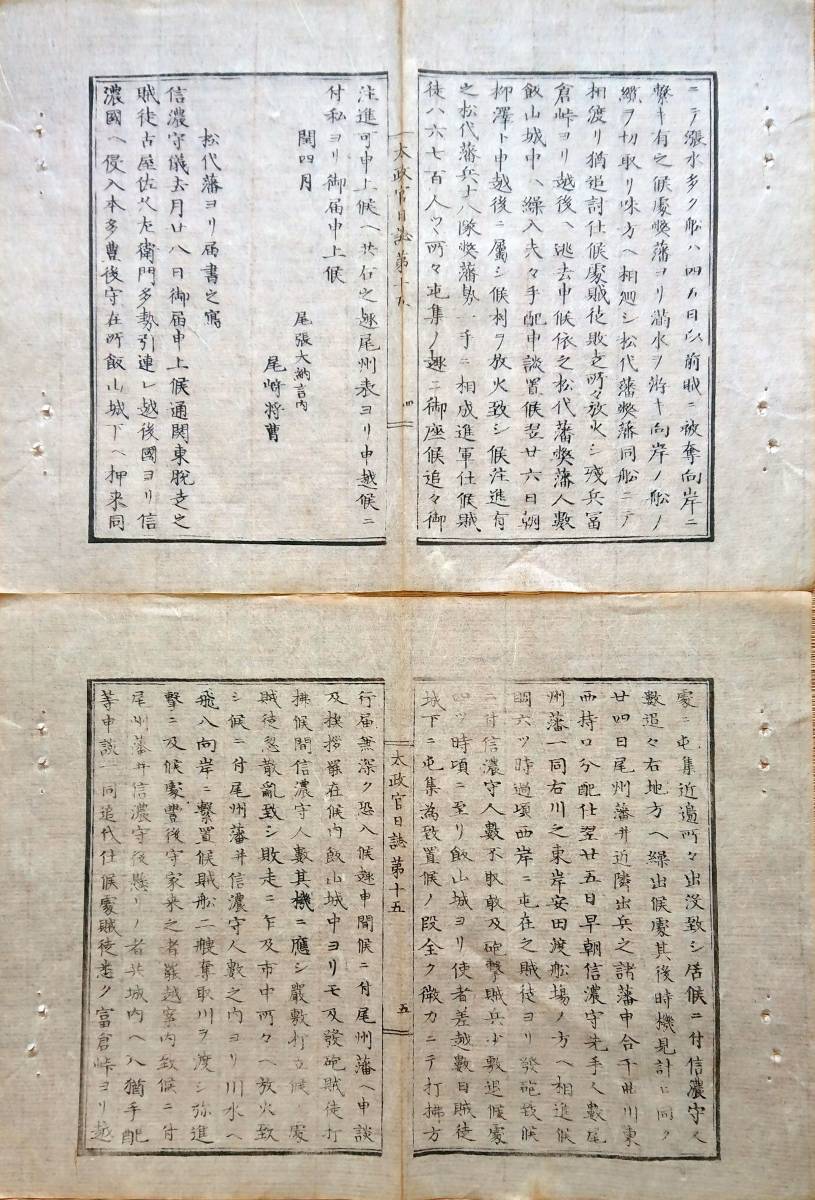 ニテ漲水多ク船ハ四五日以前賊ニ被奪向岸ニ
繋キ有之候處弊藩ヨリ満水ヲ游キ向岸ノ船ノ
纜ヲ切取リ味方ヘ相廻シ松代藩弊藩同船ニテ
相渡リ猶追討仕候處賊徒敗走所々放火シ残兵冨
倉峠ヨリ越後ヘ逃去申候依之松代藩弊藩人數
飯山城中ヘ繰入夫々手配申談置候翌廿六日朝
柳澤ト申越後ニ屬シ候村ヲ放火致シ候注進有
之松代藩兵十八隊弊藩勢一手ニ相成進軍仕候賊
徒ハ六七百人ツヽ所々屯集ノ趣ニ御座候追々御
太政官日誌第十五 四
注進可申上候ヘ共右之趣尾州表ヨリ申越候ニ
付私ヨリ御届申上候
閏四月
尾張大納言内
尾崎将曹
松代藩ヨリ届書之寫
信濃守儀去月廿八日御届申上候通関東脱走之
賊徒古屋佐久左衛門多勢引連レ越後國ヨリ信
濃國ヘ侵入本多豊後守在所飯山城下ヘ押来同
處ニ屯集近邉所々出没致シ居候ニ付信濃守人
數追々右地方ヘ繰出候處其後時機見計ヒ同月
廿四日尾州藩并近隣出兵之諸藩申合千曲川東
西持口分配仕翌廿五日早朝信濃守先手人數尾
州藩一同右川之東岸安田渡船場ノ方ヘ相進候
朝六ツ時過頃西岸ニ屯在之賊徒ヨリ發砲致候
ニ付信濃守人數不取敢及砲撃賊兵少數退候處
四ツ時頃ニ至リ飯山城ヨリ使者差越數日賊徒
城下ニ屯集為致置候ノ段全ク微力ニテ打拂方
太政官日誌第十五 五
行届無深ク恐入候趣申聞候ニ付尾州藩ヘ申談
及挨拶罷在候内飯山城中ヨリモ及發砲賊徒打
拂候間信濃守人數其機ニ應シ嚴敷打立候處
賊徒忽散亂致シ敗走ニ乍及市中所々ヘ放火致
シ候ニ付尾州藩并信濃守人數之内ヨリ川水ヘ
飛入向岸ニ繋置候賊船二艘奪取川ヲ渡シ弥進
撃ニ及候處豊後守家来之者罷越案内致候ニ付
尾州藩并信濃守後懸リノ者共城内ヘ入猶手配
等申談一同追伐仕候處賊徒悉ク富倉峠ヨリ越